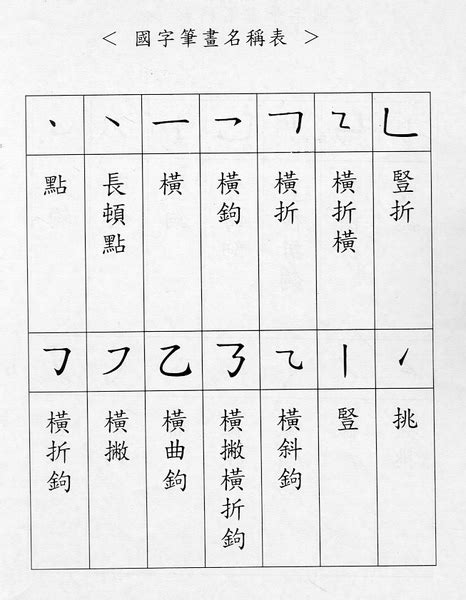 ＜ 國字筆畫名稱表 ＞
丶 ㇔ 一 乛 ㇕ ㇍ 𠃊
點
長頓點
橫
橫鉤
橫折
橫折橫
豎折
㇆ ㇇ 乙 ㇌ ⺄ 丨 ㇀
橫折鉤
橫撇
橫曲鉤
橫撇橫折鉤
橫斜鉤
豎
挑